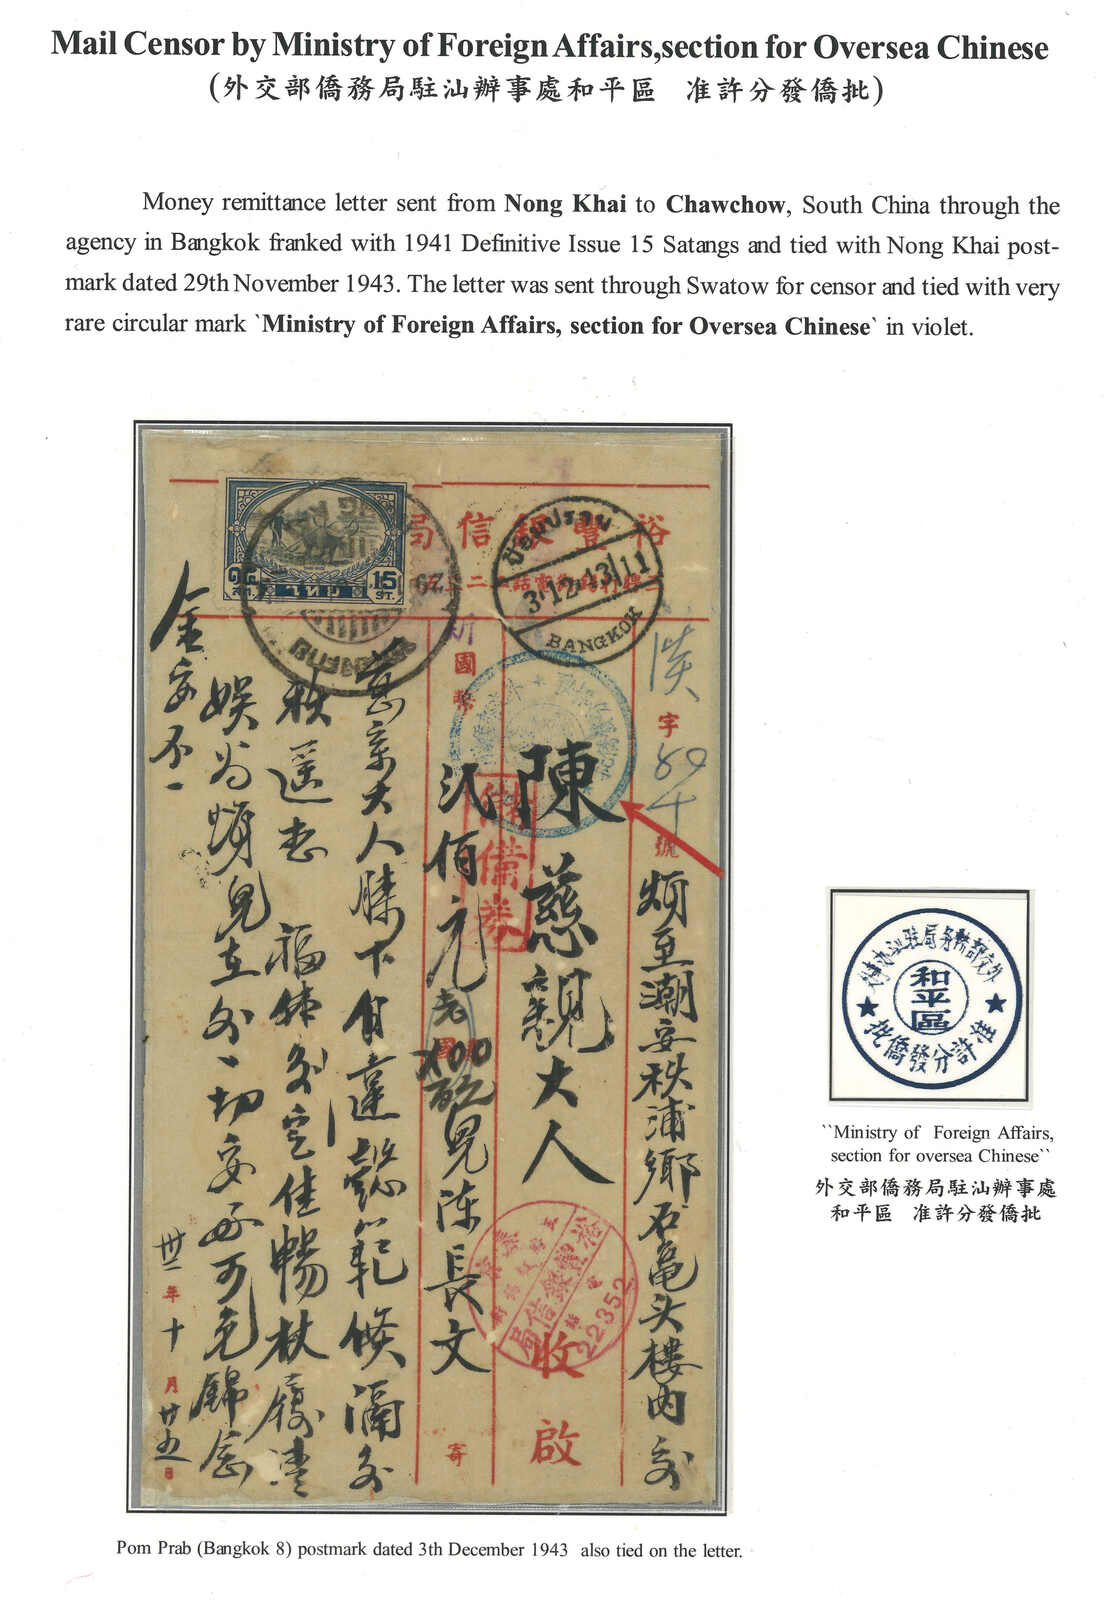 Mail Censor by Ministry of Foreign Affairs,section for Oversea Chinese
(外交部僑務局駐汕辦事處和平區 准許分發僑批)
Money remittance letter sent from Nong Khai to Chawchow, South China through the
agency in Bangkok franked with 1941 Definitive Issue 15 Satangs and tied with Nong Khai post-
mark dated 29th November 1943. The letter was sent through Swatow for censor and tied with very
rare circular mark `Ministry of Foreign Affairs, section for Oversea Chinese` in violet.
裕豐銀信局
ป้อมปราบ
3·12·43/11
BANGKOK
๑๕ 15
สต. ไทย ST.
字
號
煩至潮安秩浦鄉石龜头樓內交
陳慈親大人
收啟
國幣
儲備券
伍佰元
兒陈長文
寄
裕豐銀信局
22352
慈亲大人膝下自違懿範倏滿
秋遥想 福体
娛为頌兒在外一切安好可免錦念
金安不一
卅二年十月廿五日
外交部僑务局駐汕办事处
和平區
★ 准許分發僑批 ★
``Ministry of Foreign Affairs,
section for oversea Chinese``
外交部僑務局駐汕辦事處
和平區 准許分發僑批
Pom Prab (Bangkok 8) postmark dated 3th December 1943 also tied on the letter.